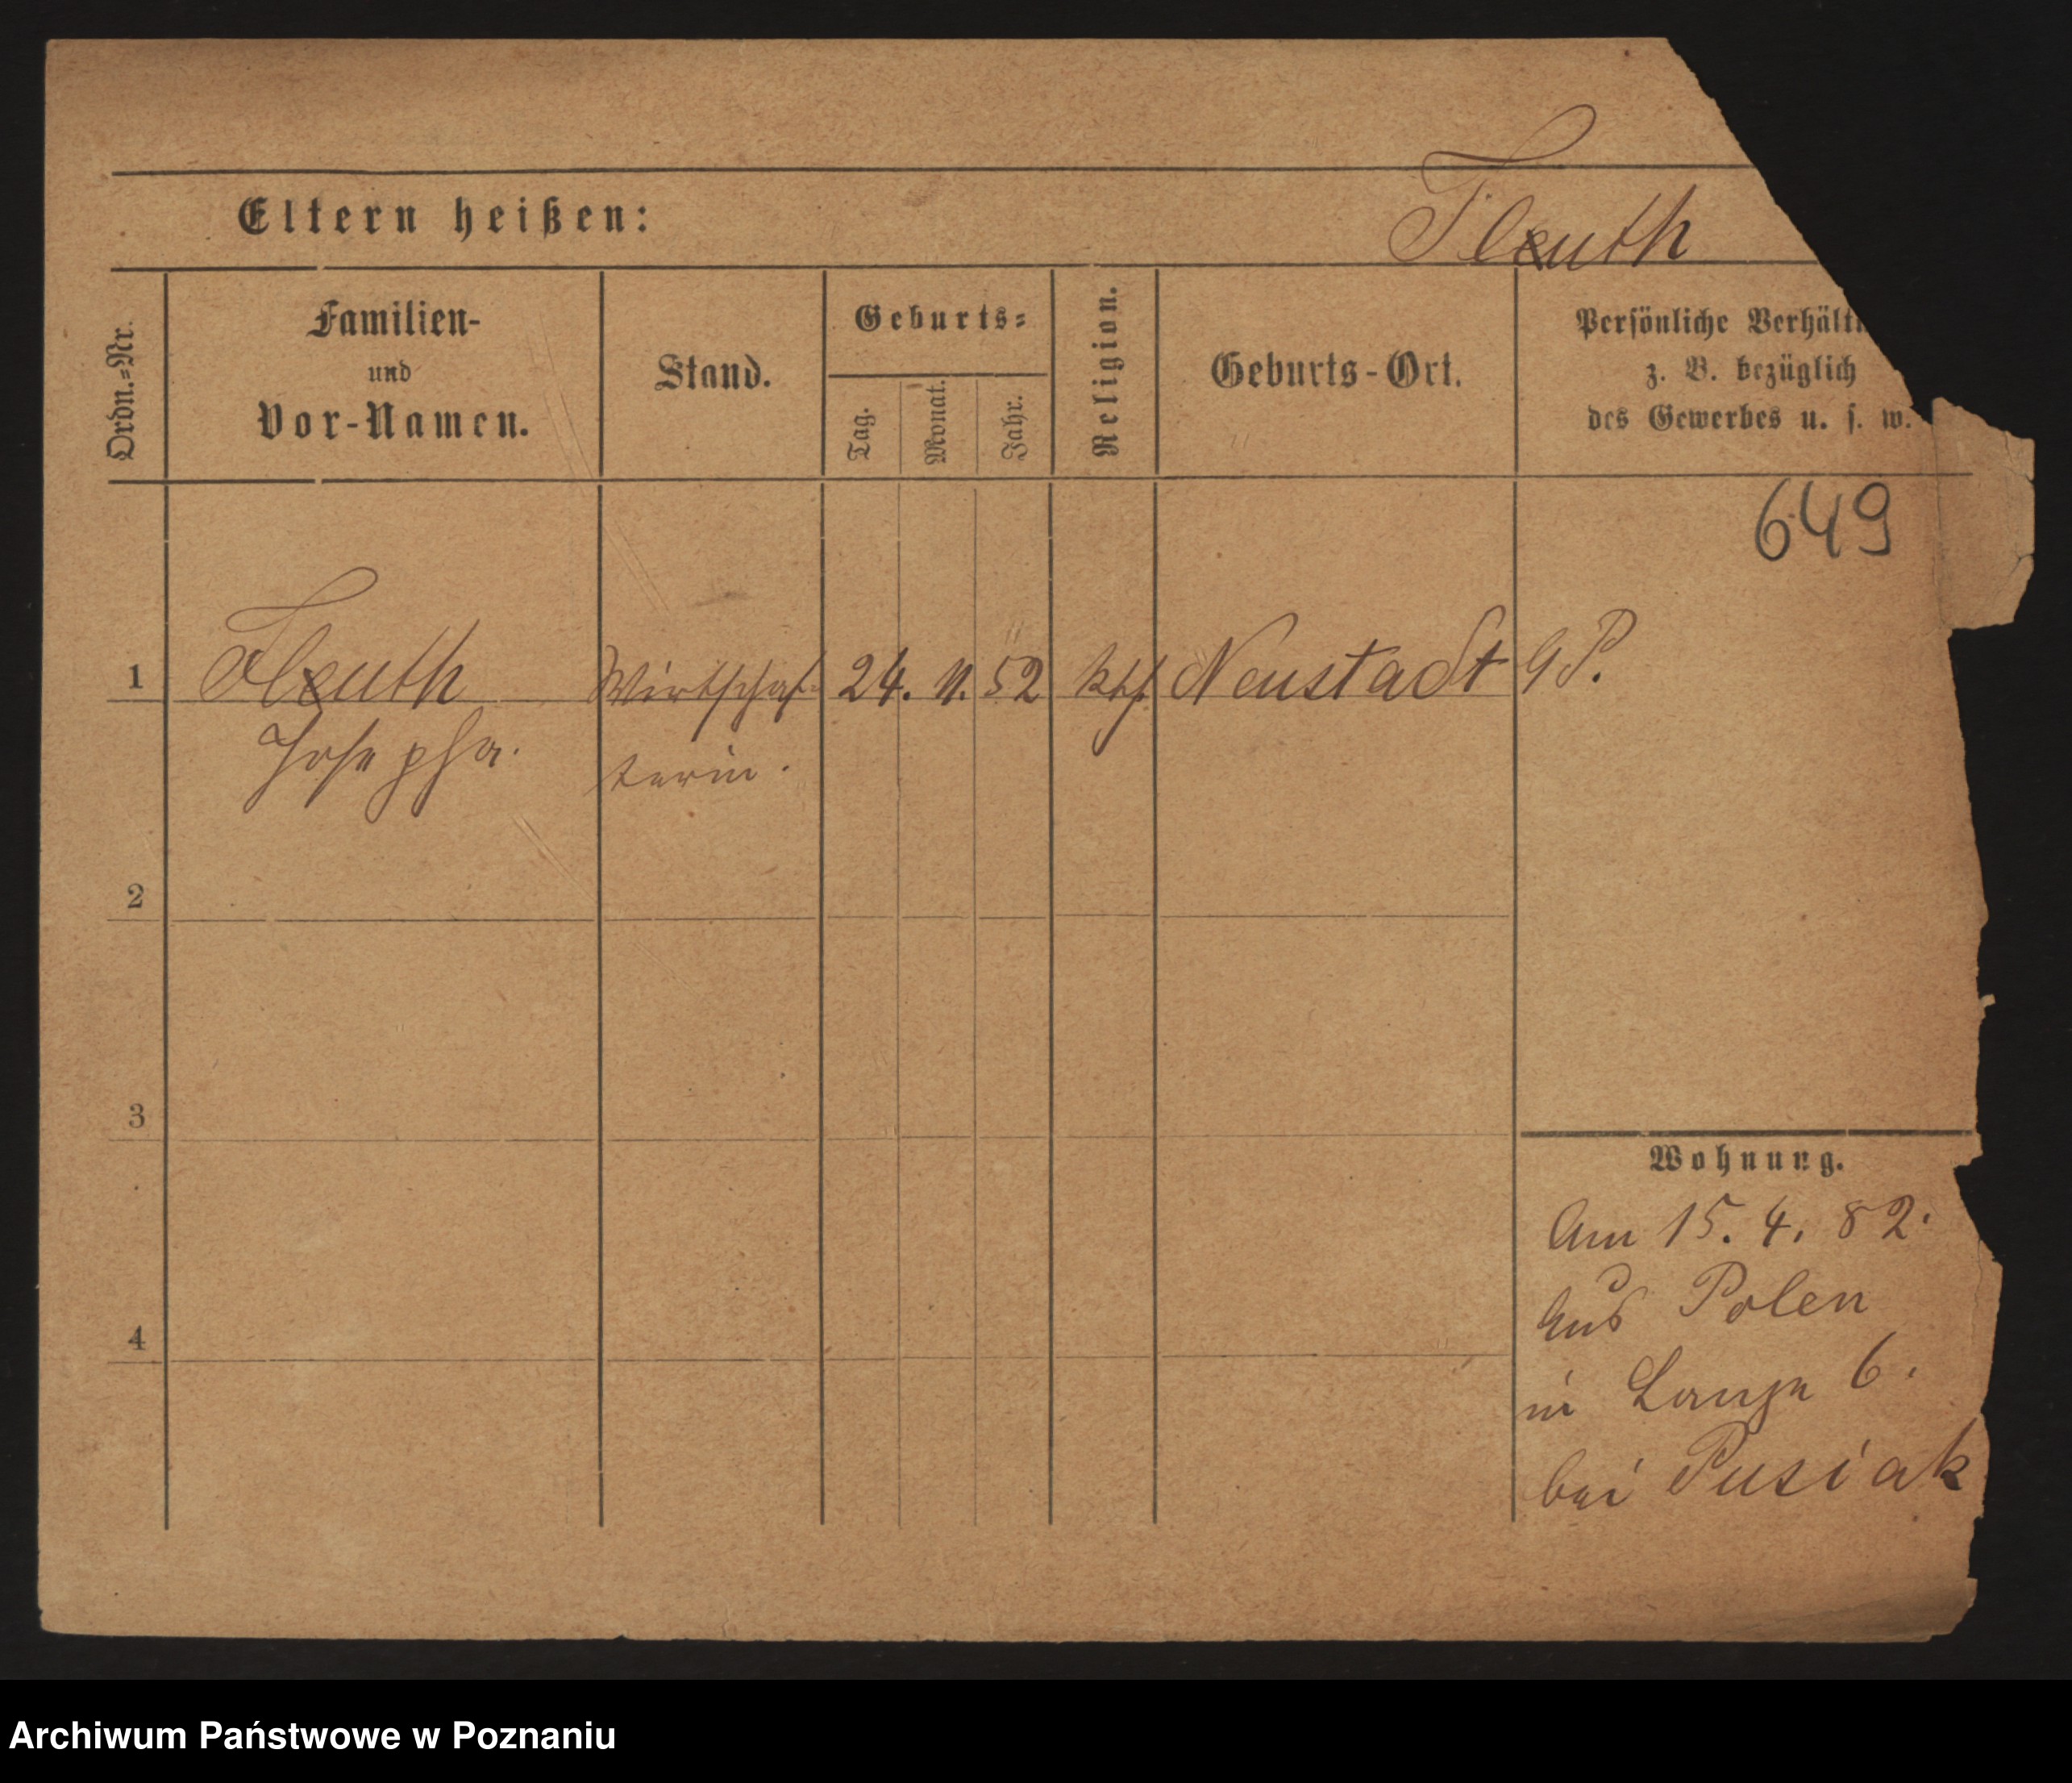 Eltern heißen:
Fleuth
Ordn.=Nr.
Familien-
und
Vor-Namen.
Stand.
Geburts=
Tag.
Monat.
Jahr.
Religion.
Geburts-Ort.
Persönliche Verhält
z. B. bezüglich
des Gewerbes u. s. w.
649
1 Fleuth Wirthschaf- 24. 11. 52 kth. Neustadt
Josepha. terin.
2
3
4
Wohnung.
Am 15. 4. 82.
Aus Polen
in Lange 6.
bei Pusiak
Archiwum Państwowe w Poznaniu